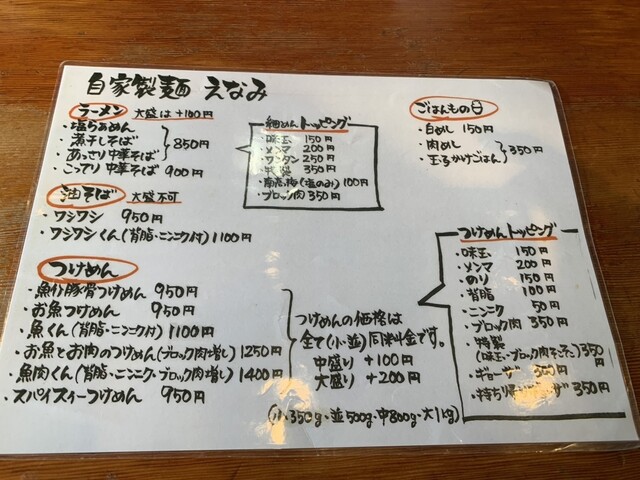 自家製麺 えなみ
ラーメン 大盛は+100円
・塩らぁめん
・煮干しそば
・あっさり中華そば
850円
・こってり中華そば 900円
油そば 大盛不可
・ワシワシ 950円
・ワシワシくん(背脂・ニンニク付) 1100円
つけめん
・魚介豚骨つけめん 950円
・お魚つけめん 950円
・魚くん(背脂・ニンニク付) 1100円
・お魚とお肉のつけめん(ブロック肉増し) 1250円
・魚肉くん(背脂・ニンニク・ブロック肉増し) 1400円
・スパイスィーつけめん 950円
つけめんの価格は
全て(小・並)同一料金です。
中盛り +100円
大盛り +200円
(小350g・並500g・中800g・大1kg)
細めん トッピング
・味玉 150円
・メンマ 200円
・ワンタン 250円
・特製 350円
・南高梅(塩のみ) 100円
・ブロック肉 350円
ごはんもの
・白めし 150円
・肉めし
・玉子かけごはん
350円
つけめん トッピング
・味玉 150円
・メンマ 200円
・のり 150円
・背脂 100円
・ニンニク 50円
・ブロック肉 350円
・特製
(味玉・ブロック肉 350円
・ギョーザ
・持ち帰り 350円